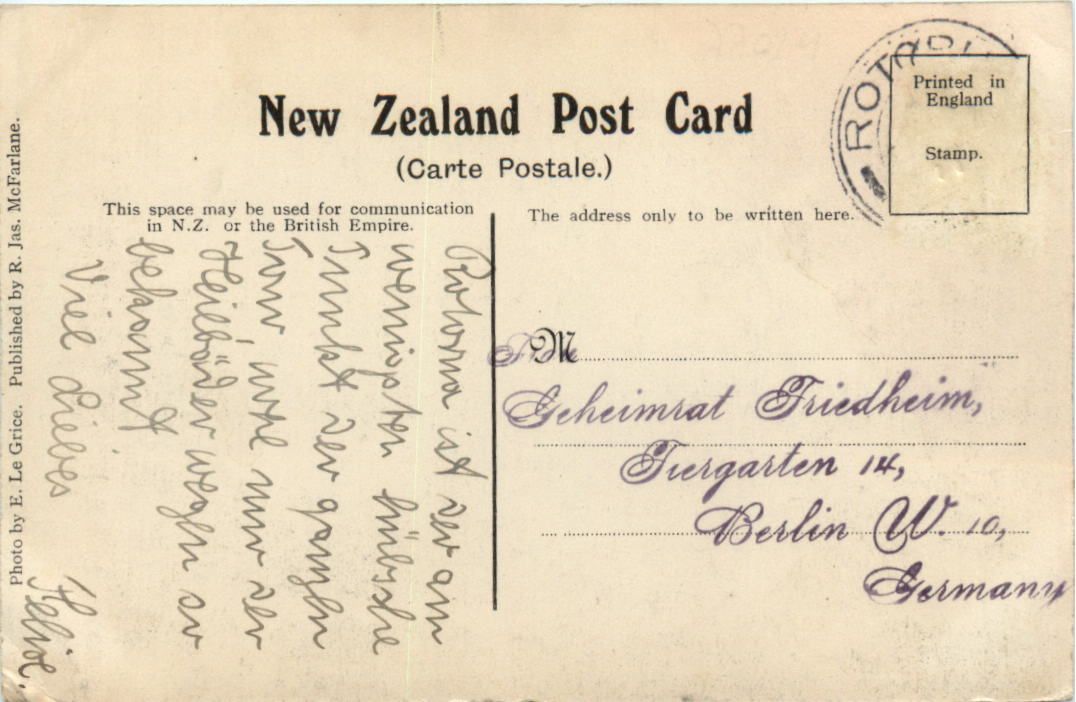 New Zealand Post Card
(Carte Postale.)
Printed in
England
Stamp.
This space may be used for communication
in N.Z. or the British Empire.
The address only to be written here.
Rotorua ist der am
wenigsten hübsche
Punkt der ganzen
Tour, wohl nur der
Heilbäder wegen so
bekannt
Viel Liebes
M
Geheimrat Friedheim,
Tiergarten 14,
Berlin W. 10,
Germany
Photo by E. Le Grice. Published by R. Jas. McFarlane.